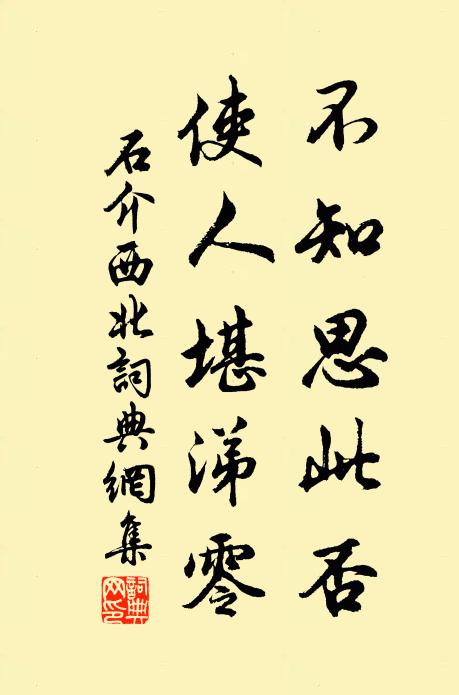 不知思此否
使人堪涕零
石介西北詞典網集
詞典
网印